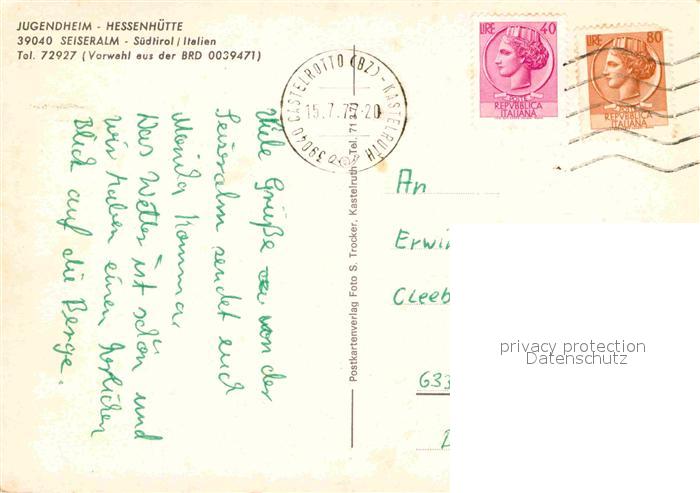 JUGENDHEIM - HESSENHÜTTE
39040 SEISERALM - Südtirol / Italien
Tel. 72927 (Vorwahl aus der BRD 0039471)
39040 CASTELROTTO (BZ) - KASTELRUTH
15.7.7 20
LIRE 40
POSTE
REPVBBLICA
ITALIANA
LIRE 80
POSTE
REPVBBLICA
ITALIANA
Viele Grüße von der
Seiseralm sendet euch
Monika Komma,
Das Wetter ist schön und
wir haben einen herlichen
Blick auf die Berge.
Postkartenverlag Foto S. Trocker, Kastelruth Tel. 71373
An
Erwin
Cleeb
633
privacy protection
Datenschutz